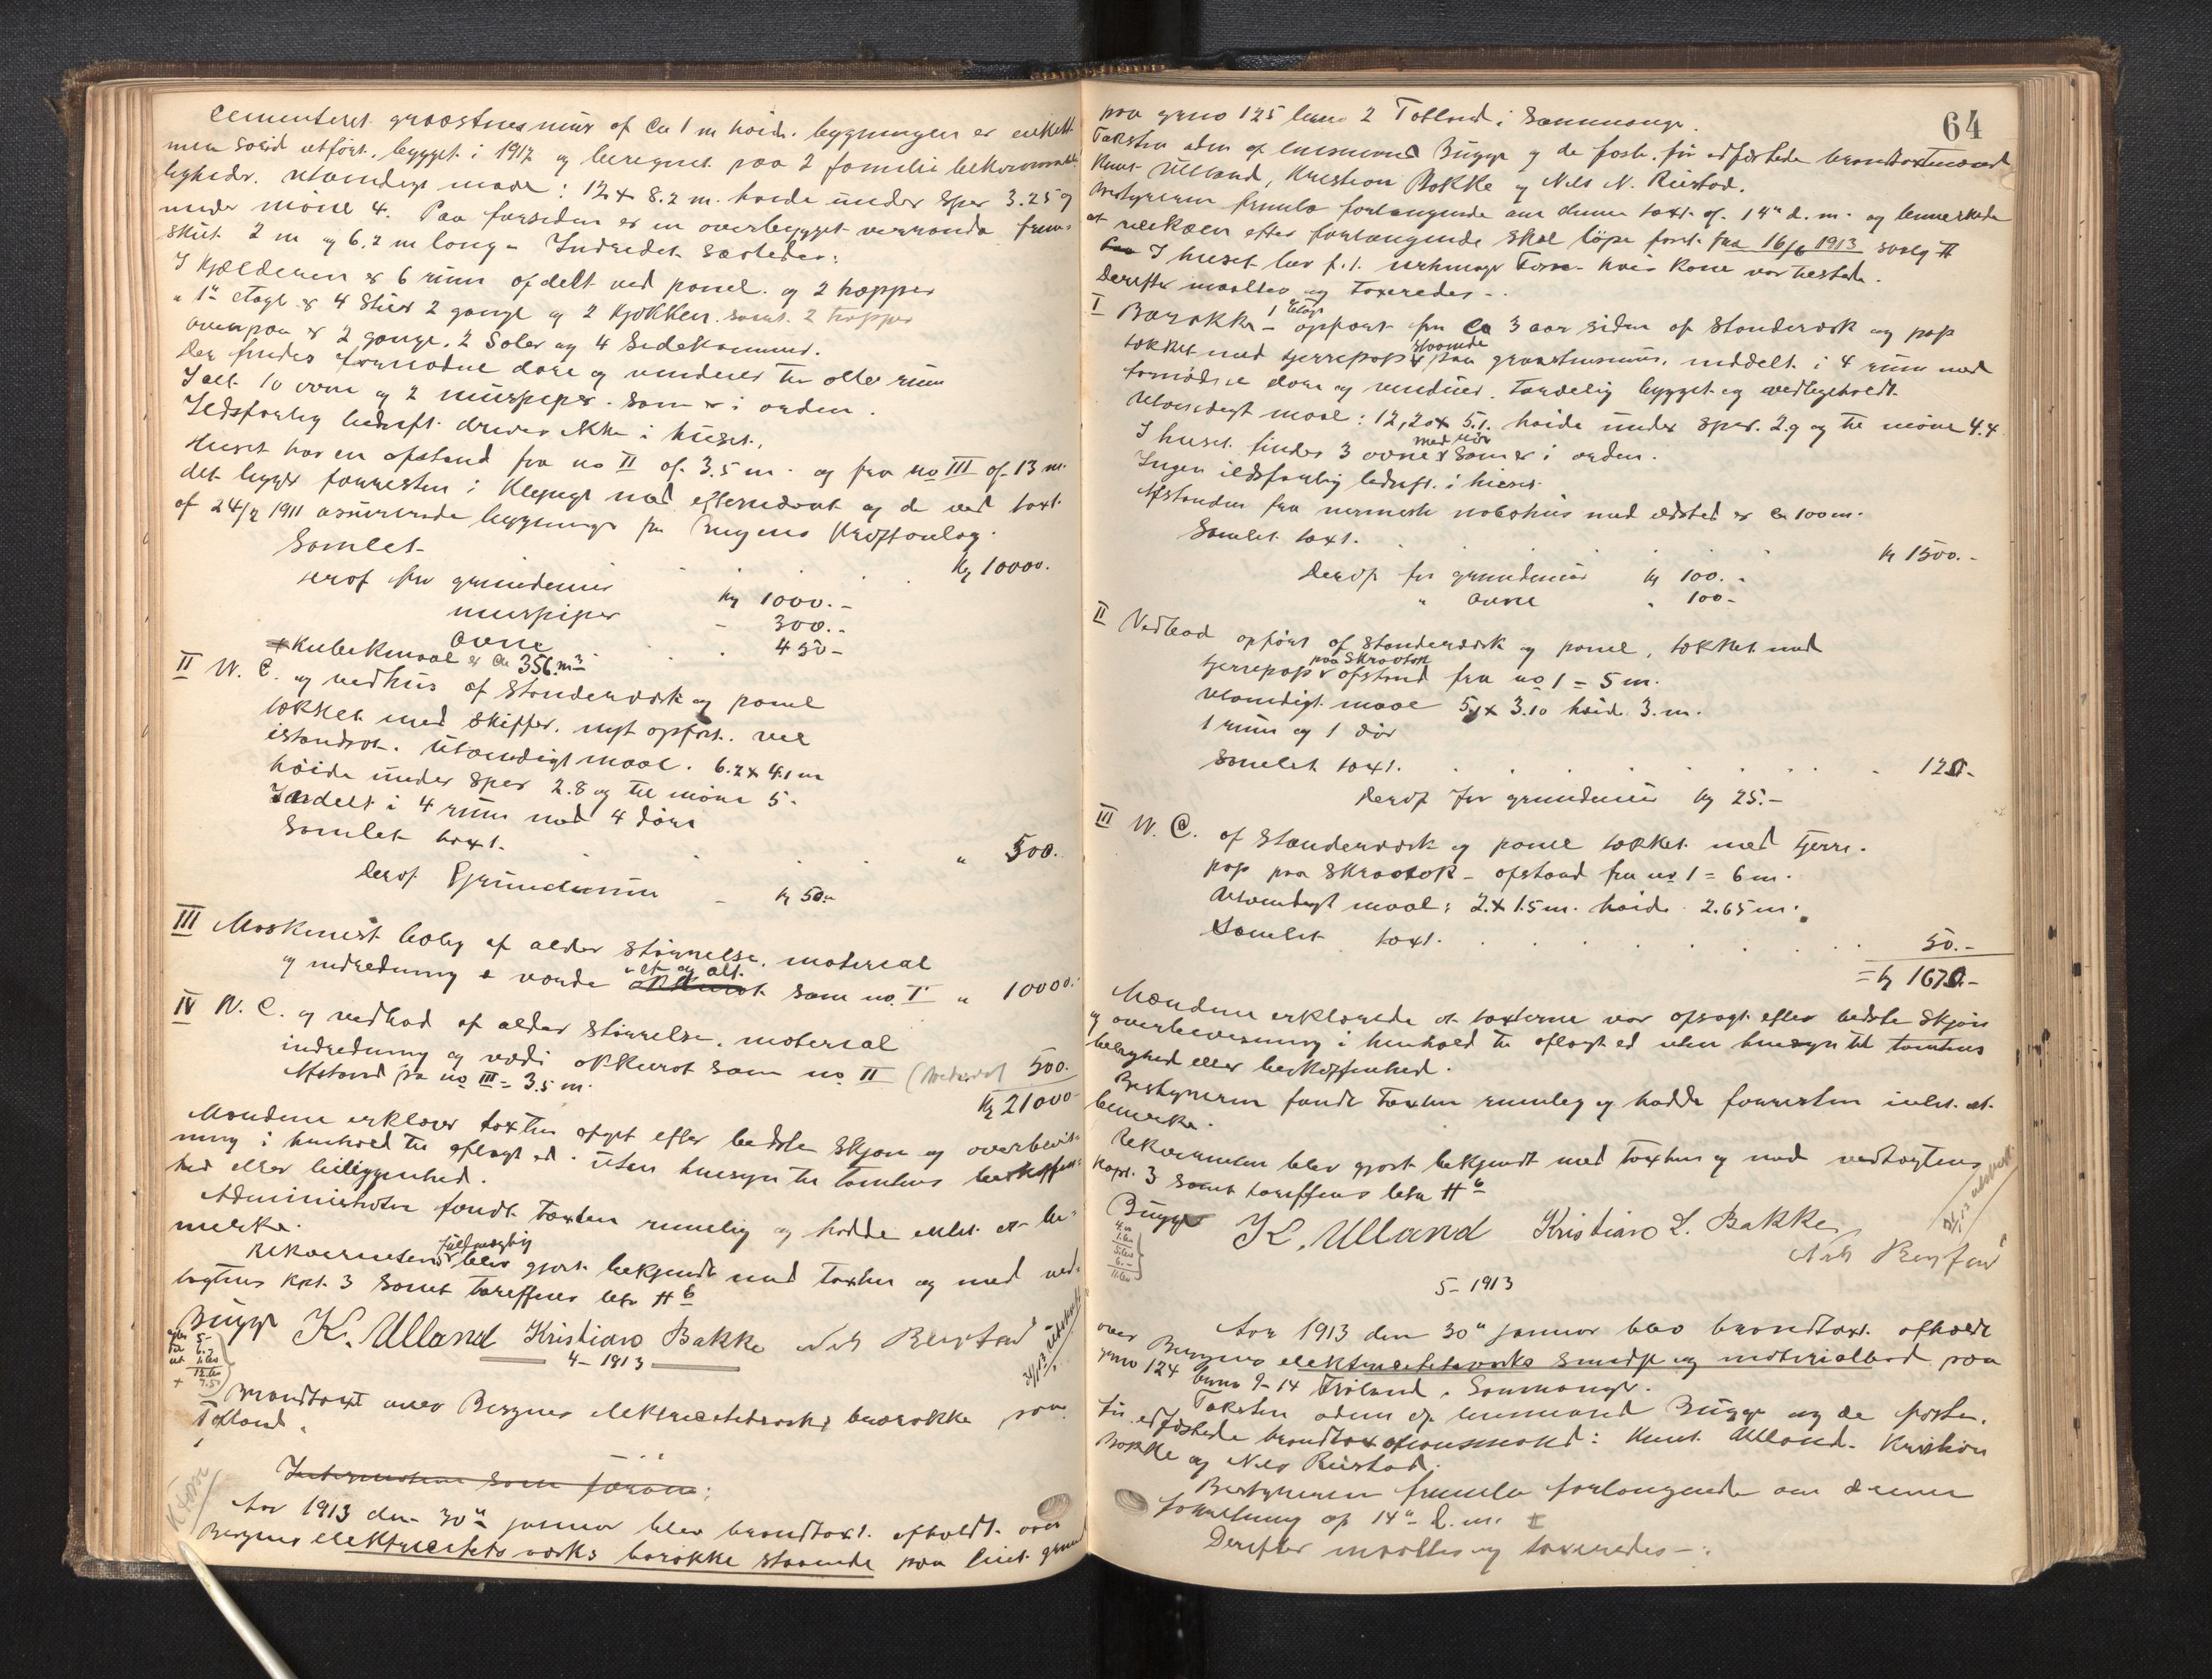 cementeret graastensmur af ca 1 m høide. bygningen er enkelt
men solid utført, bygget i 1912 og beregnet paa 2 familie bekvemme-
ligheder. Utvendige maal: 12 x 8.2 m. høide under sper 3.25 og
under møne 4. Paa forsiden er en overbygget verranda frem-
skut 2 m og 6.2 m lang - Indredet saaledes:
I kjælderen er 6 rum afdelt ved panel. og 2 trapper
" 1ste etage er 4 stuer 2 gange og 2 kjøkken. samt. 2 trapper
ovenpaa er 2 gange, 2 saler og 4 sidekammer.
Der findes fornødne døre og vinduer til alle rum
I alt 10 ovne og 2 murpiper. som er i orden.
Ildsfarlig bedrift drives ikke i huset.
Huset har en afstand fra no II af 3.5 m. og fra no III af 13 m.
det ligger forresten i klynge med efternævnt og de ved taxt
af 24/2 1911 asurerede bygninger for Bergens Kraftanlæg.
Samlet Kr 10000.
derof for grundmur kr 1000.-
murpiper - 300.-
ovne 450-
+ Kubikmaal er ca 356 m3
II W. C. og vedhus af standerværk og panel
tækket med skiffer. nyt opført. vel
istandsat. Utvendigt maal. 6.2 x 4.1 m
høide under sper 2.8 og til møne 5.
Inddelt i 4 rum med 4 døre
Samlet taxt. " 500.
derof Grundmur - kr 50.-
III Maskinist bolig af alder størrelse, material
og indredning e værdi i et og alt. som no. I " 10000.
IV W. C. og vedbod af alder størrelse. material
indredning og værdi akkurat som no II 500.
Afstand fra no III = 3.5 m. Kr 21000-
Mændene erklærer taxten afgit efter bedste skjøn og overbevis-
ning i henhold til aflagt ed. uten hensyn til tomtens beskaffen-
hed eller beliggenhed.
Administrator fandt taxten rimelig og hadde intet at be-
merke.
Rekvirentens fuldmægtig blev gjort bekjendt med taxten og med ved-
tægtens kpt. 3 samt tariffens litr H 6
Bügge K. Ulland Kristian Bakke Nils Rustad
4 - 1913
Brandtaxt over Bergens elektricitetsværks barakke paa
Tøtland.
Aar 1913 den 30te januar blev brandtaxt afholdt over
Bergens elektricitets værks barakke staaende paa leiet grund
64
paa grno 125 bruno 2 Totland i Sammanger.
Taksten aden af lensmand Bügge og de fast. før edfæstede brandtaxtmænd
Knut Ulland, Kristian Bakke og Nils N. Rustad.
Bestyreren fremla forlangende om denne taxt af 14de d. m. og bemerkede
at risikoen efter forlangende skal løpe først fra 16/6 1913
I huset bor f. t. hvis kone var tilstede.
Derefter maaltes og taxeredes -.
I Barakke - 1 etage opført for ca 3 aar siden af standerværk og pap
tækket med tjærrepap staaende paa graastensmur. inddelt i 4 rum med
fornødne døre og vinduer. tarvelig bygget og vedligeholdt.
Utvendigt maal: 12,20 x 5.1. høide under sper. 2.9 og til møne 4.4
I huset findes 3 ovne med rør som er i orden.
Ingen ildsfarlig bedrift i huset.
Afstanden fra nermeste nabohus med ildsted er ca 100 m.
Samlet taxt. kr 1500.-
Derof for grundmur kr 100.-
" ovne " 100-
II Vedbod opført af standerværk og panel, tækket med
tjærrepap paa skraatak afstand fra no 1 = 5 m.
Utvendigt maal 5.1 x 3.10 høide 3. m.
1 rum og 1 dør
Samlet taxt. 120.-
Derof for grundmur kr 25.-
III W. C. af standerværk og panel tækket med tjærre-
pap paa skraatak - afstand fra no 1 = 6 m.
Utvendigt maal: 2. x 1.5 m. høide 2.65 m.
Samlet taxt. 50.-
= kr 1670.-
Mændene erklærede at taxterne var afsagt efter bedste skjøn
og overbevisning i henhold til aflagt ed uten hensyn til tomtens
belighed eller beskaffenhed.
Bestyreren fandt taxten rimelig og hadde forresten intet at
bemerke.
Rekvirenten blev gjort bekjendt med taxten og med vedtægtens
kapt. 3 samt tariffens litr H 6
Bügge K. Ulland Kristian L. Bakke
Nils Rustad
5 - 1913
Aar 1913 den 30te januar blev brandtaxt afholdt
over Bergens elektricitetsværks smedje og materialbod paa
grno 124 bruno 9-14 Frøland i Sammanger.
Taksten aden af lensmand Bügge og de faste.
før edfæstede brandtaxationsmænd: Knut Ulland. Kristian
Bakke og Nils Rustad.
Bestyreren fremla forlangende om denne
forretning af 14de d. m.
Derefter maaltes og taxeredes -: